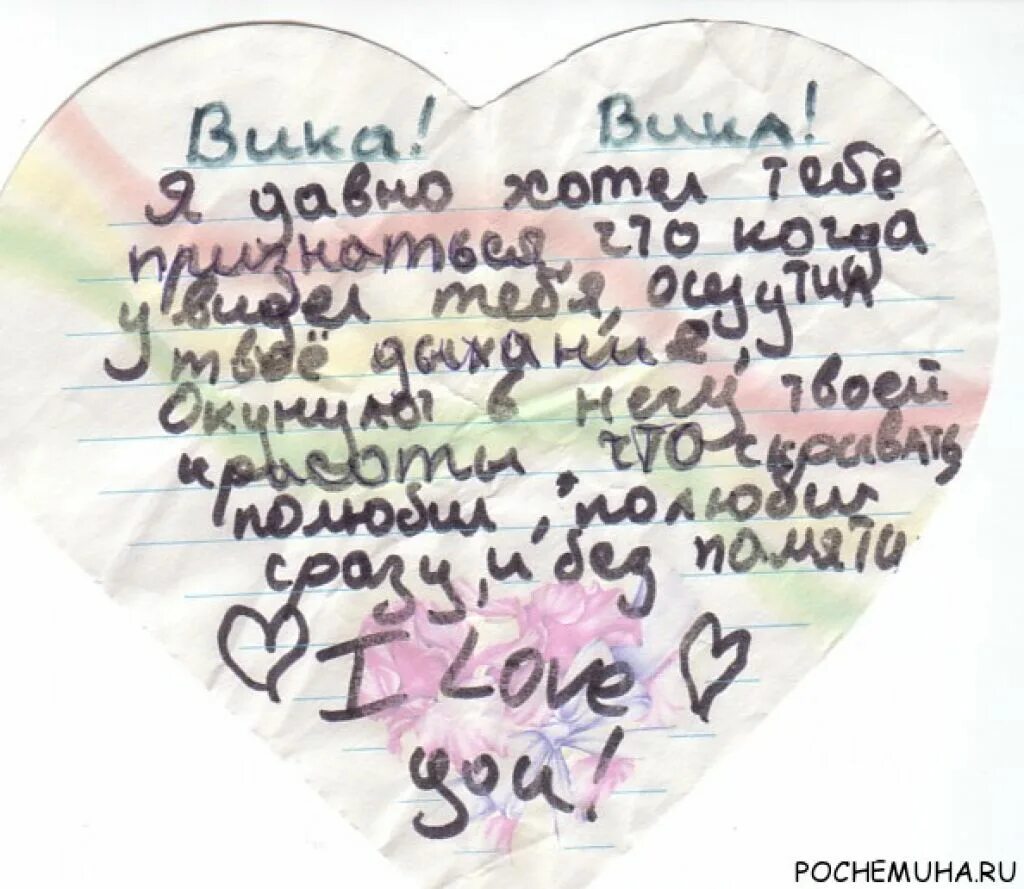 Вика! Вика!
Я давно хотел тебе
признаться, что когда
увидел тебя, осщутил
твоё дыхание,
Окунулся в негу твоей
красоты, что скрывать
полюбил, полюбил
сразу, и без памяти
I Love
you!
POCHEMUHA.RU